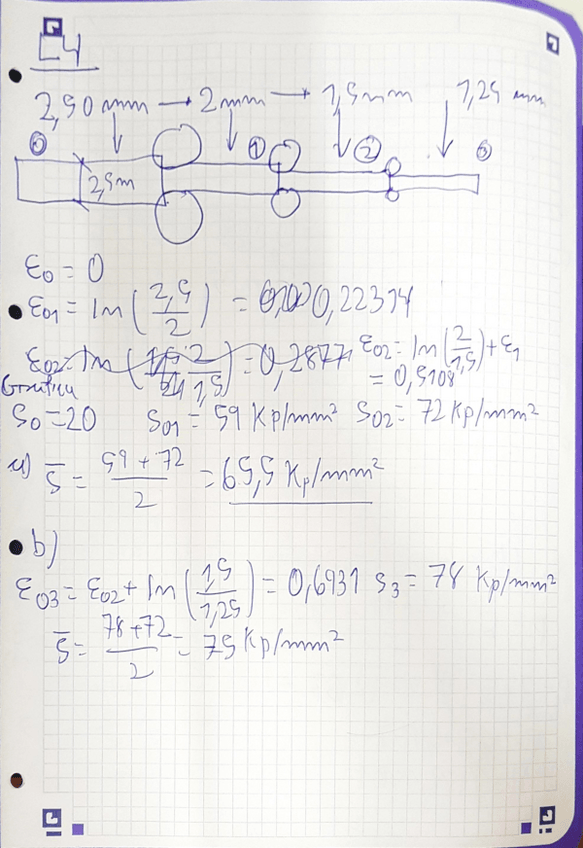 C4
2,50 mm → 2mm → 1,5mm 1,25 mm
0 1 2 3
2,5m
ε0 = 0
ε01 = ln(2,5/2) = 0,22314
ε02 = ln(2/1,5) = 0,2877 ε02 = ln(2/1,5) + ε1
= 0,5108
Gráfica
S0 = 20 S01 = 59 Kp/mm² S02 = 72 Kp/mm²
a) S̄ = (59 + 72)/2 = 65,5 Kp/mm²
b)
ε03 = ε02 + ln(1,5/1,25) = 0,6931 S3 = 78 Kp/mm²
S̄ = (78 + 72)/2 = 75 Kp/mm²